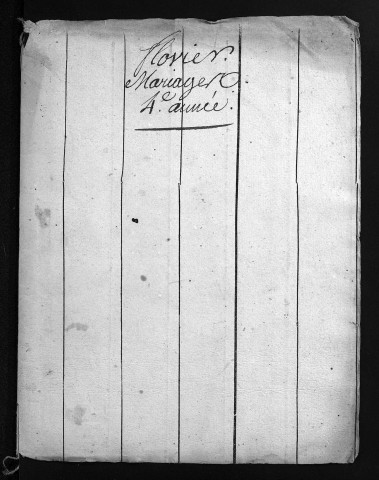 flovier.
Mariages.
4.e année.